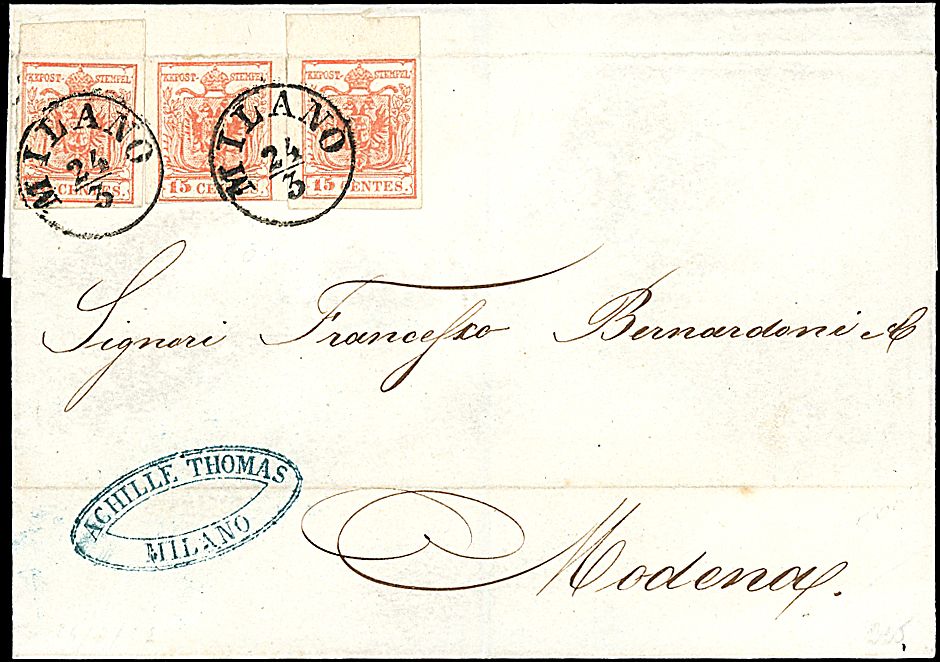 KKPOST-STEMPEL KKPOST-STEMPEL KKPOST-STEMPEL
MILANO 24/3 MILANO 24/3
CENTES. 15 CE 15 CENTES.
Signori Francesco Bernardoni & C
ACHILLE THOMAS
MILANO
Modena.